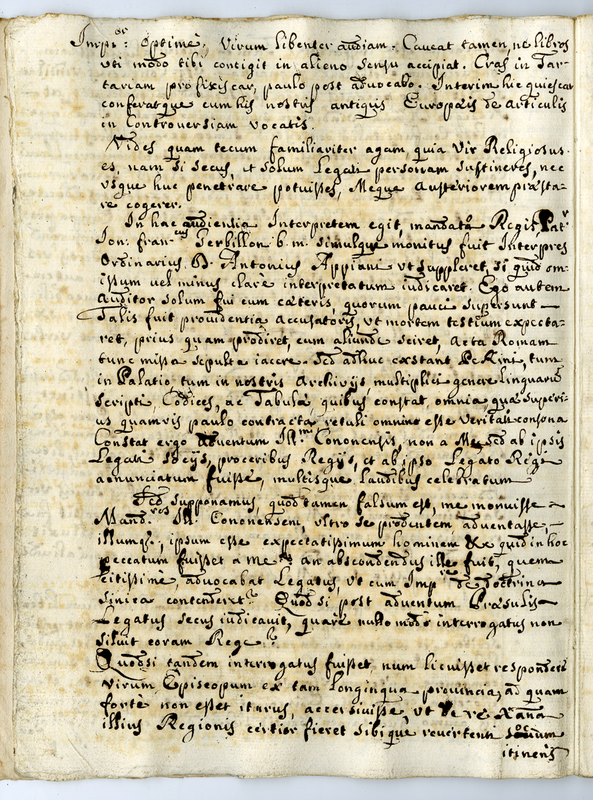 Impr.or: Optimè, Virum libenter audiam. Caveat tamen, ne libros
uti modo tibi contigit in alieno sensu accipiat. Cras in Tar-
tariam profiscar, paulo post advocabo. Interim hic quiescat
conferatque cum his nostris antiquis Europæis de Articulis
in Controversiam vocatis.
Vides quam tecum familiariter agam, quia Vir Religiosus
es, nam si secus, et solum Legati personam sustineres, nec
usque huc penetrare potuisses, Meque Austeriorem præsta-
re cogeres.
In hac audientia Interpretem egit, mandata Regis, Patr
Ion: fran.cus Gerbillon b. m. simulque monitus fuit Interpres
Ordinarius D. Antonius Appiani ut suppleret, si quid om-
issum vel minus clare interpretatum iudicaret. Ego autem
Auditor solum fui cum cæteris, quorum pauci supersunt
Talis fuit providentia Accusatoris, ut mortem testium expecta-
ret, prius quam prodiret, cum aliunde sciret, Acta Romam
tunc missa sepulta iacere. Sed adhuc exstant Pekini, tum
in Palatio, tum in nostris Archivijs multiplici genere linguarum
scripti, Codices, ac Tabulæ quibus constat, omnia quæ superi-
us quamvis paulo contracta retuli omnino esse Veritati consona
Constat ergo Adventum Ill.mi Cononensis, non a Me sed ab ipsis
Legati socijs, proceribus Regijs, et ab ipso Legato Regi
annunciatum fuisse, multisque laudibus celebratum
Sed supponamus, quod tamen falsum est, me monuisse
Mand.ros Ill. Cononensem, ultro se prodentem adventasse,
illumq., ipsum esse expectatissimum hominem &c quid in hoc
peccatum fuisset a me? an abscondendus ille fuit, quem
citissimè, advocabat Legatus, ut cum Imp.re de Doctrina
sinica contenderet? Quod si post adventum Præsulis
Legatus secus iudicavit, quare nullo modo interrogatus non
siluit coram Rege?
Quodsi tandem interrogatus fuisset, num licuisset respondere
Virum Episcopum ex tam longinqua provincia, ad quam
fortè non esset iturus, accersivisse, ut de re Xana
illius Regionis certior fieret sibique revertenti socium
itineris